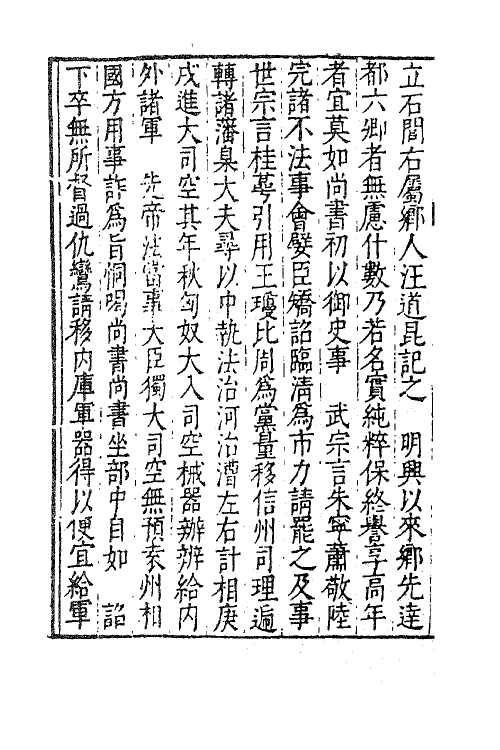 立石閭右屬鄉人汪道昆記之　明興以來鄉先達
都六卿者無慮什數乃若名實純粹保終譽享高年
者宜莫如尚書初以御史事　武宗言朱寧蕭敬陸
完諸不法事會嬖臣矯詔臨清為市力請罷之及事
世宗言桂萼引用王瓊比周為黨量移信州司理遍
轉諸藩臬大夫尋以中執法治河治漕左右計相庚
戌進大司空其年秋匈奴大入司空械器辦辨給內
外諸軍　先帝法當事大臣獨大司空無預袁州相
國方用事詐為旨恫喝尚書尚書坐部中自如　詔
下卒無所督過仇鸞請移內庫軍器得以便宜給軍